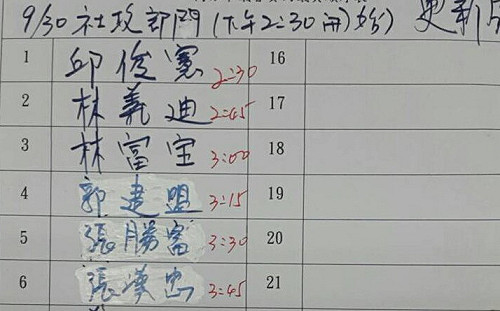 9/30 社政部門(下午2:30開始) 更新
1 邱俊憲 2:30 16
2 林義迪 2:45 17
3 林富宝 3:00 18
4 郭建盟 3:15 19
5 張勝富 3:30 20
6 張漢忠 3:45 21